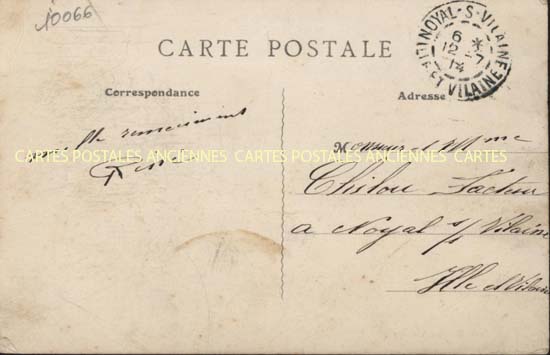 10066
NOYAL-S-VILAINE
6
12 - 7
14
ILLE ET VILAINE
CARTE POSTALE
Correspondance
Adresse
mille remerciment
CARTES POSTALES ANCIENNES CARTES POSTALES ANCIENNES CARTES
Monsieur et Mme
Facteur
a Noyal s/ Vilaine
Ille et Vilaine